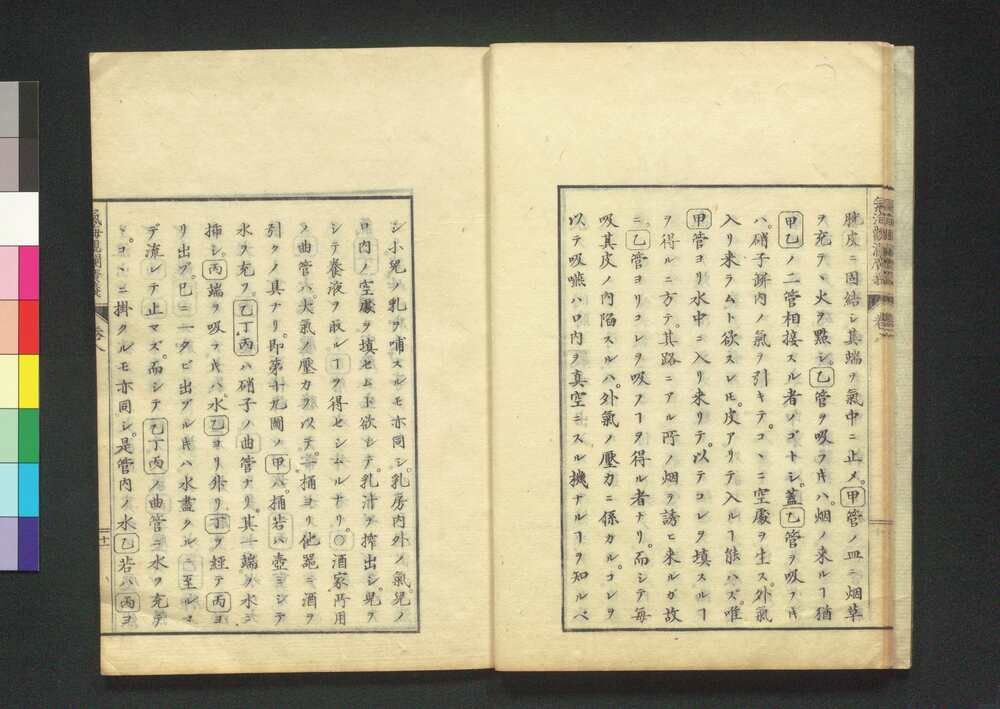 膀皮ニ固結シ其端ヲ氣中ニ止メ。甲管ノ皿ニ烟草
ヲ充テヽ火ヲ點シ乙管ヲ吸フ𪜈ハ。烟ノ来ルヿ猶
甲乙ノ二管相接スル者ノゴトシ。蓋乙管ヲ吸フ𪜈
ハ。硝子餅内ノ氣ヲ引キテ。コヽニ空處ヲ生ス。外氣
入リ来ラムト欲スレ𪜈。皮アリテ入ルヿ能ハズ。唯
甲管ヨリ水中ニ入リ来リテ。以テコレヲ填スルヿ
ヲ得ルニ方テ。其路ニアル所ノ烟ヲ誘ヒ来ルガ故
ニ。乙管ヨリコレヲ吸フヿヲ得ル者ナリ。而シテ毎
吸其皮ノ内陥スルハ。外氣ノ壓力ニ係カル。コレヲ
以テ吸嚥ハ口内ヲ真空ニスル機ナルヿヲ知ルベ
シ小兒ノ乳ヲ哺スルモ亦同シ。乳房内外ノ氣。兒ノ
口内ノ空處ヲ填セムト欲シテ。乳汁ヲ搾出シ。兒ヲ
シテ養液ヲ取ルヿヲ得セシムルナリ。○酒家所用
ノ曲管ハ。大氣ノ壓力ヲ以テ。一桶ヨリ他器ニ酒ヲ
引クノ具ナリ。即第十九圖ノ甲ハ。桶若ハ壺ニシテ
水ヲ充フ。乙丁丙ハ硝子ノ曲管ナリ。其一端水ニ
挿シ。丙端ヲ吸フ𪜈ハ。水乙ヨリ升リ丁ヲ經テ丙ヨ
リ出ヅ。已ニ一タビ出ヅル𪜈ハ水盡クルニ至ルマ
デ流レテ止マズ。而シテ乙丁丙ノ曲管ニ水ヲ充テ
テ。コヽニ掛クルモ亦同シ。是管内ノ水乙若ハ丙ヨ
卷八
二十